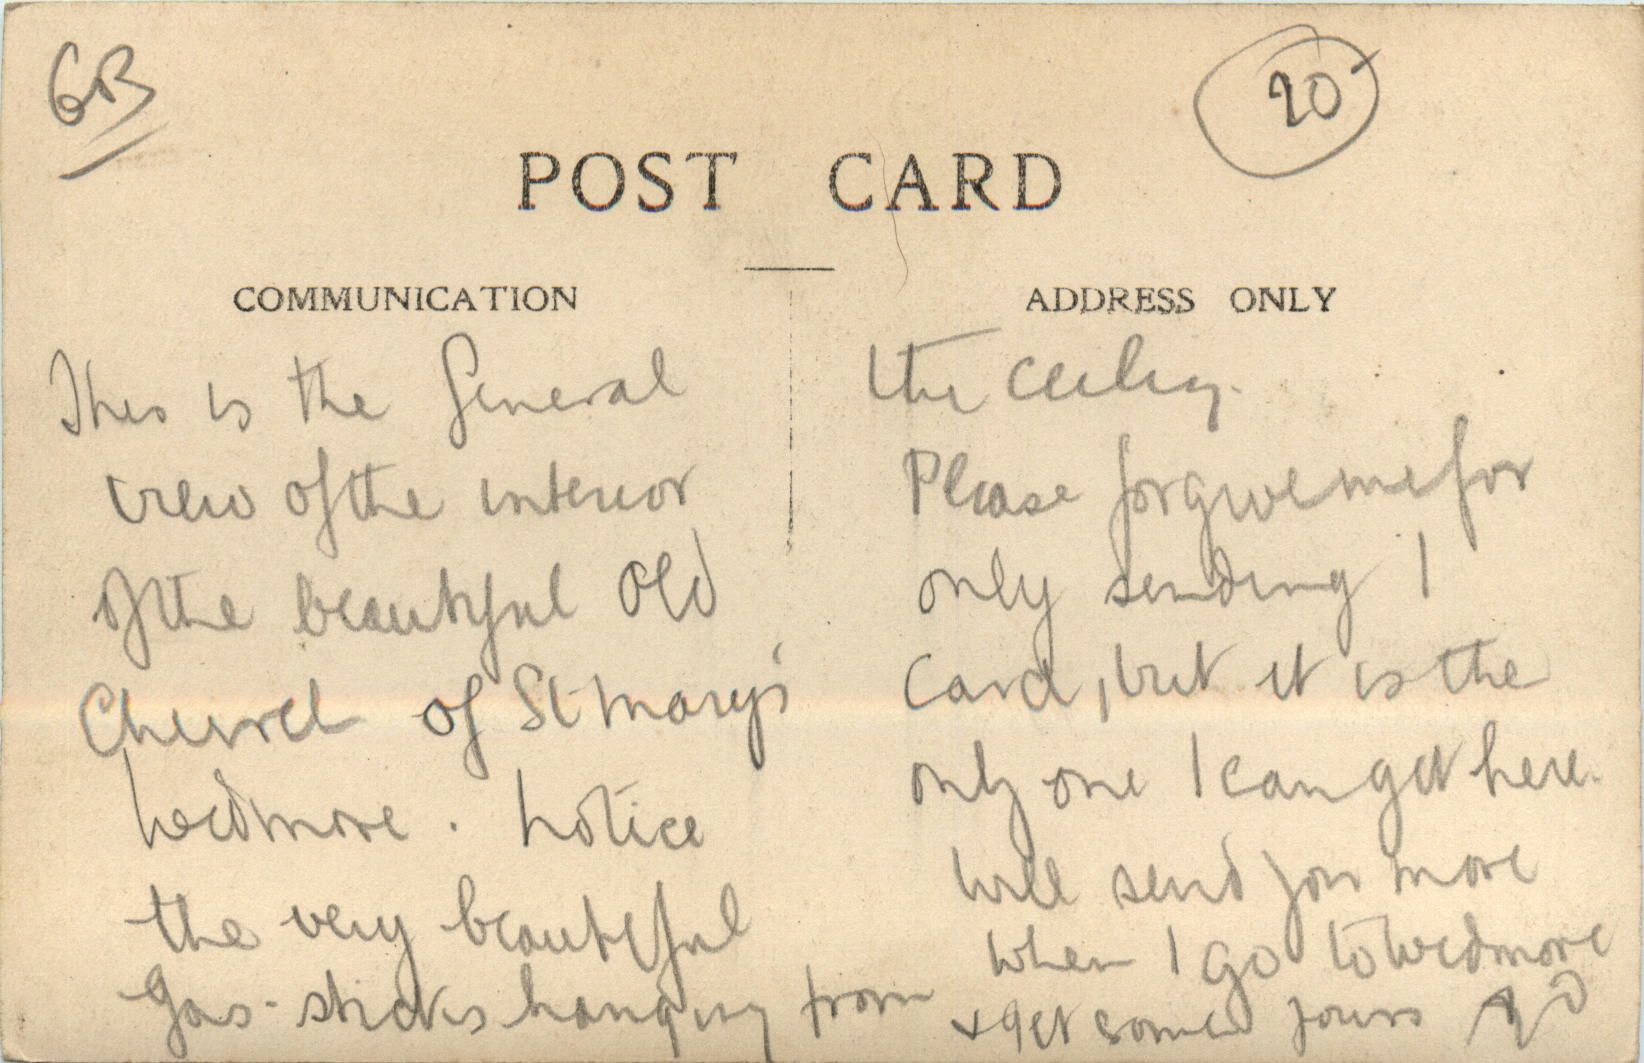 GB
20
POST CARD
COMMUNICATION
ADDRESS ONLY
This is the General
view of the interior
of the beautiful Old
Church of St Mary's
Wedmore. Notice
the very beautiful
Gas-sticks hanging from
the ceiling.
Please forgive me for
only sending 1
Card, but it is the
only one I can get here.
Will send you more
when I go to Wedmore
& get some yours